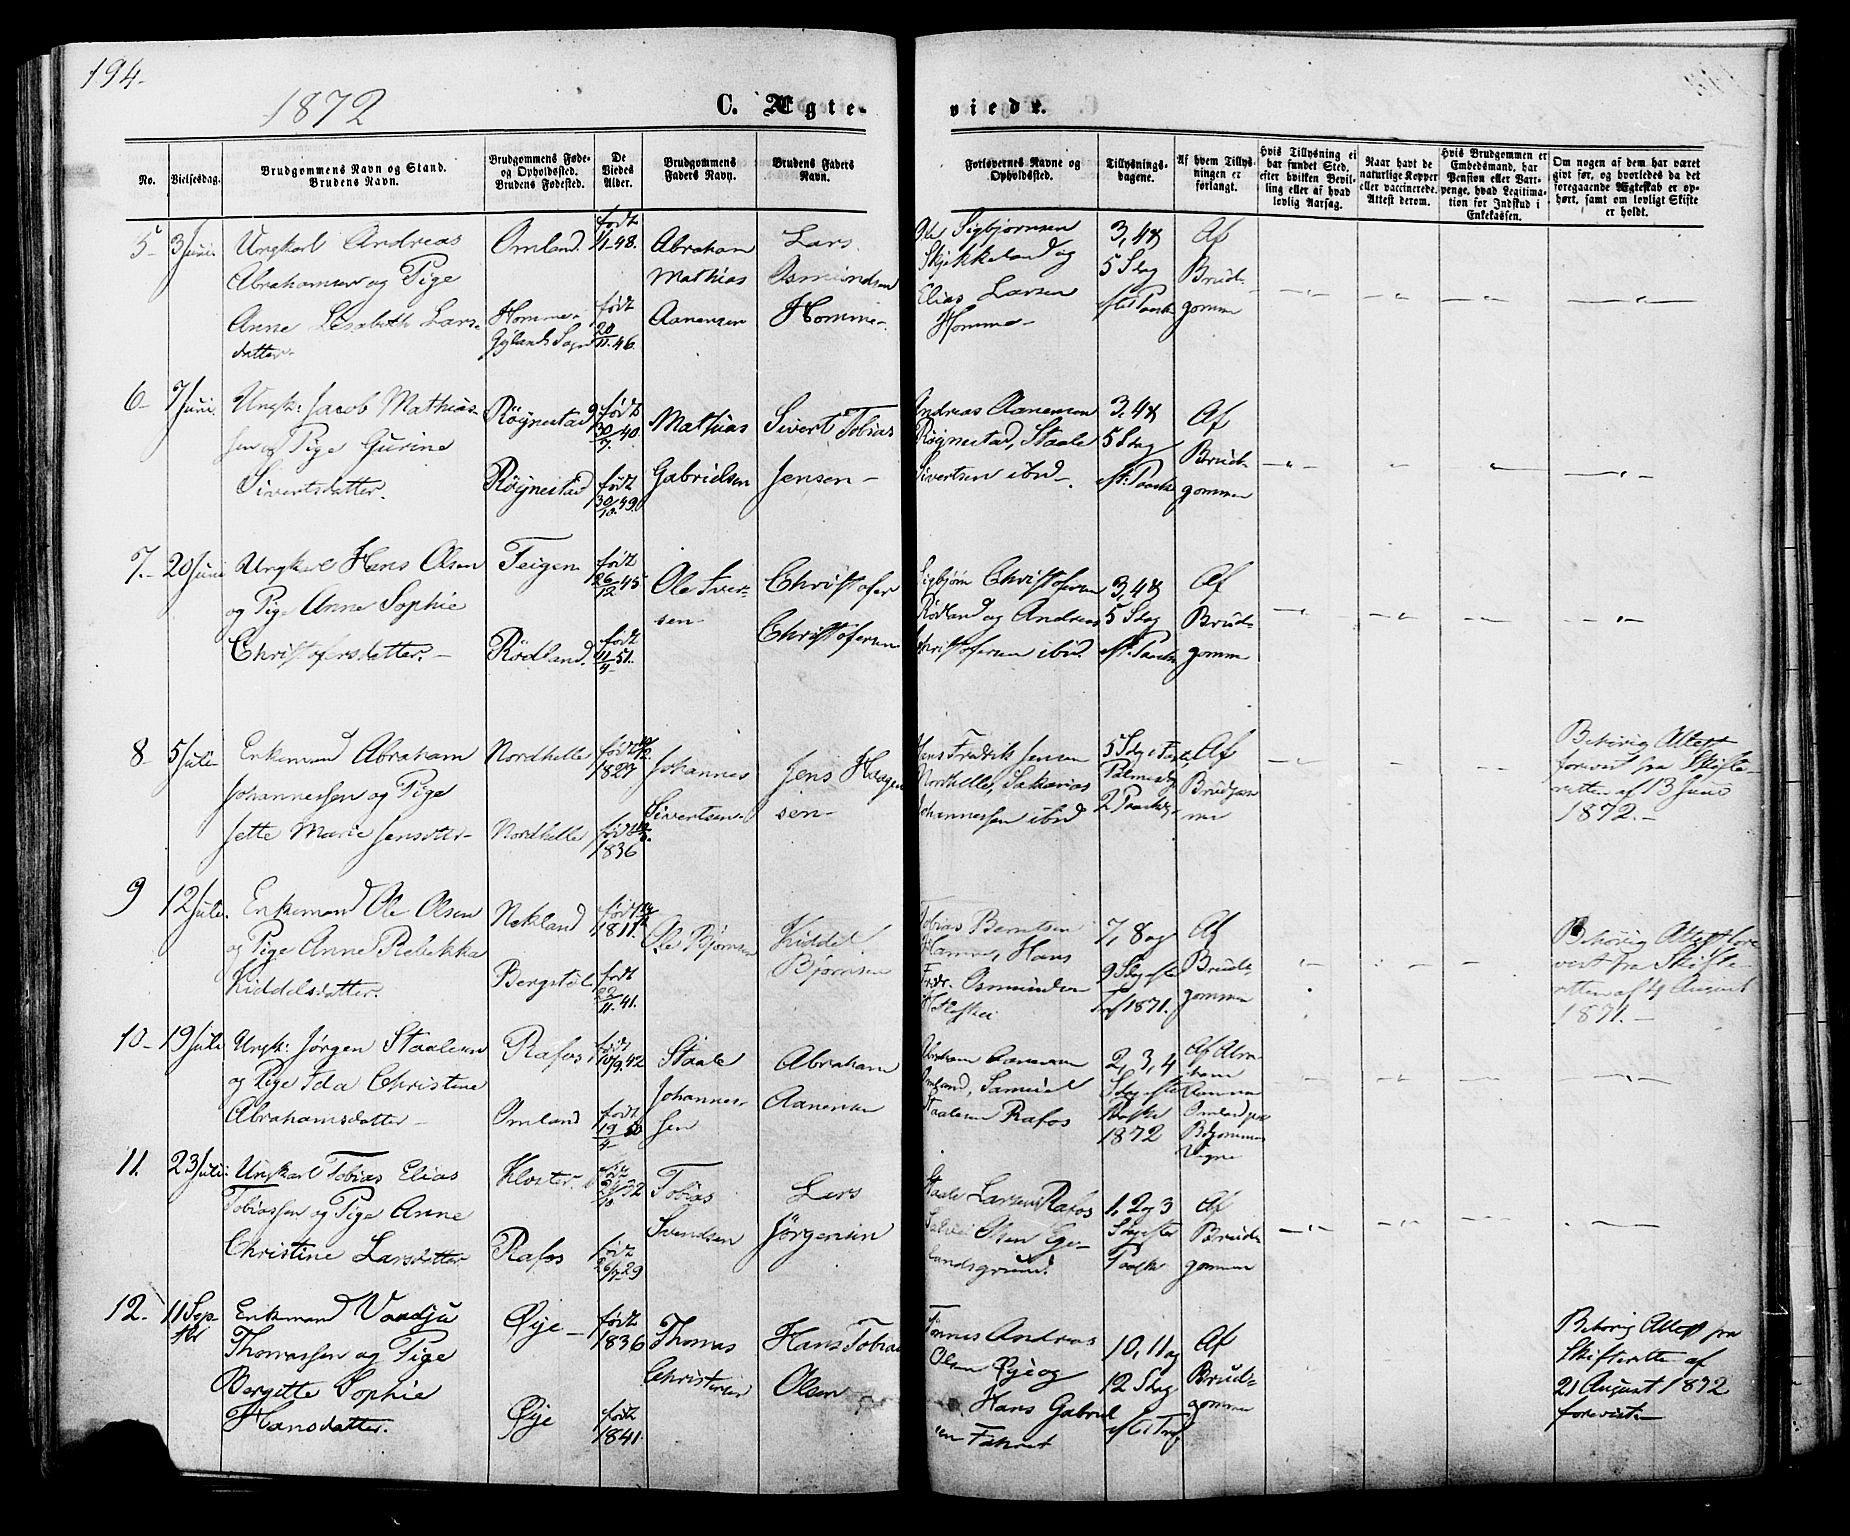 194.
1872
C. Ægte-
viede.
No.
Vielsesdag.
Brudgommens Navn og Stand.
Brudens Navn.
Brudgommens Føde-
og Opholdssted.
Brudens Fødested.
De
Viedes
Alder.
Brudgommens
Faders Navn.
Brudens Faders
Navn.
Forlovernes Navne og
Opholdssted.
Tillysnings-
dagene.
Af hvem Tillys-
ningen er
forlangt.
Hvis Tillysning ei
har fundet Sted,
efter hvilken Bevil-
ling eller af hvad
lovlig Aarsag.
Naar havt de
naturlige Kopper
eller vaccinerede.
Attest derom.
Hvis Brudgommen er
Embedsmand, har
Pension eller Vart-
penge, hvad Legitima-
tion for Indskud i
Enkekassen.
Om nogen af dem har været
gift før, og hvorledes da det
foregaaende Ægteskab er op-
hørt, samt om lovligt Skifte
er holdt.
5- 3 Juni
Ungkarl Andreas
Abrahamsen og Pige
Anne Lisabeth Lars-
datter.
Omland.
Homme-
Gylands Sogn
født
født
20/11 46.
Abraham
Mathias
Aanensen
Lars
Osmundsen
Homme-
Sigbjørnsen
Skjekkeland og
Elias Larsen
Homme-
3, 4 &
5 Sdag
efter Paaske
Af
Brud-
gomme
6- 7 Juni.
Ungk: Jacob Mathias-
sen og Pige Gurine
Sivertsdatter.
Røynestad
Røynestad
født
30/7 40
født
30/10 49.
Mathias
Gabrielsen
Sivert Tobias
Jensen-
Andreas Aanensen
Røynestad, Staale
Sivertsen ibid-
3, 4 &
5 Sdag
eft. Paaske
Af
Brud-
gommen
7.- 20 Juni
Ungkarl Hans Olsen
og Pige Anne Sophie
Christofersdatter.-
Feigen
Rødland.
født
26/12 45
født
11/4 51.
Ole Iver-
sen-
Christofer
Christofersen
Sigbjørn Christofersen
Rødland og Andreas
Christofersen ibid.
3, 4 &
5 Sdag
eft. Paaske
Af
Brud-
gomme
8- 5 Juli-
Enkemand Abraham
Johannessen og Pige
Jette Marie Jensdtter-
Nordhelle
Nordhelle
født
1827
født
1836
Johannes
Sivertsen-
Jens Haagen-
sen-
Jens Fredrik Jensen
Northelle, Sakarias
Johannessen ibid
5 Sdg i Faste
Palmesdg
2 Paaskdg
Af
Brudgom
men
Behørig Attest
forevist fra Skifte-
retten af 13 Juni
1872.-
9 12 Juli.
Enkemand Ole Olsen
og Pige Anne Rebekka
Kiddelsdatter.
Nekland
Bergstøl
født
1811.
født
22/11 41.
Ole Bjørnsen
Kiddel
Bjørnsen
Tobias Berntsen
Hamre, Hans
Fredr. Osmundsen
7, 8 og
9 Sdg efter
Tref 1871.
Af
Brud-
gommen
Behørig Attest fore-
vist fra Skifte-
retten af 4 August
1871.-
10- 19 Juli
Ungk: Jørgen Staalesen
og Pige Ida Christine
Abrahamsdatter-
Rafos.
Omland
født
10/9 42
født
19/4 50
Staale
Johannes-
sen
Abraham
Aanensen
Abraham Aanensen
Omland, Samuel
Staalesen Rafos
2, 3, 4
Sdg efter
Paaske
1872
Af Abra-
ham
Aanensen
Omland paa
Bdgommens
Vegne
11. 23 Juli.
Ungkarl Tobias Elias
Tobiassen og Pige Anne
Christine Larsdatter
Kloster.
Rafos
32
født
29
Tobias
Svendsen
Lars
Jørgensen
Staale Larsen Rafos
Olsen Ege-
landsgrund.
1, 2 og 3
Sdg efter
Paaske
Af
Brud-
gommen
12. 11 Sep-
tbr
Enkemand Vaadju
Thomassen og Pige
Bergitte Sophie
Hansdatter.
Øye-
Øye
født
1836
født
1841.
Thomas
Christensen
Hans Tobias
Olsen
Tønnes Andreas
Olsen Øye og
Hans Gabriel
10, 11 og
12 Sdag
eft. Tref
Af
Brud-
gomme
Behørig Attest fra
Skifteretten af
21 August 1872
forevist-